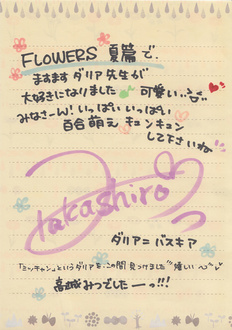 FLOWERS 夏篇で、
ますます ダリア先生が
大好きになりました♪ 可愛い…
みなさーん!いっぱいいっぱい
百合萌え キュンキュン
して下さいね
takashiro
ダリア=バスキア
「ミッチャン」というダリアを、この間見つけました 嬉しい
高城みつでしたーっ!!